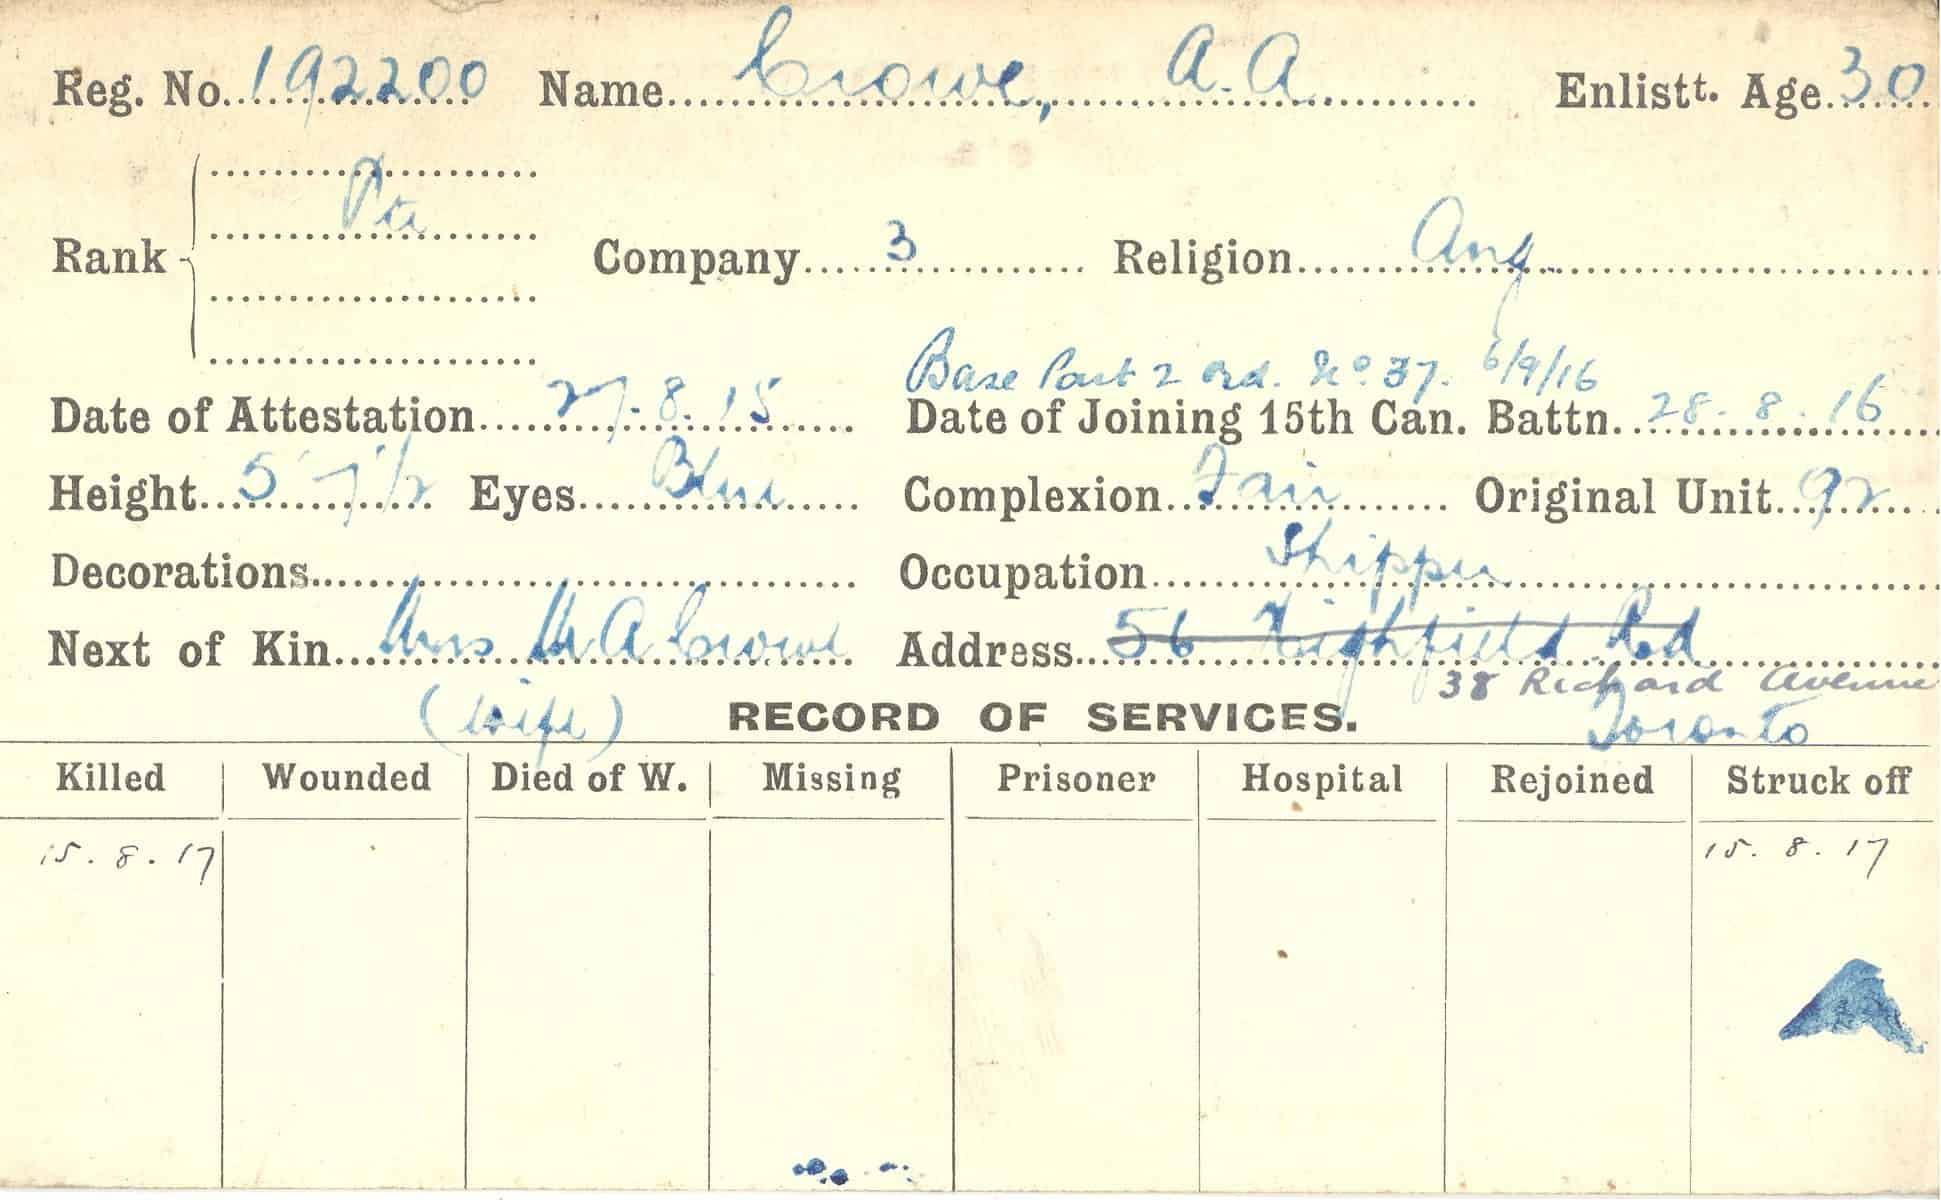 Reg. No. 192200 Name Crowe, A.A. Enlistt. Age 30
Rank Pte Company 3 Religion Ang.
Base Part 2 Ord. No. 37. 6/9/16
Date of Attestation 27.8.15 Date of Joining 15th Can. Battn. 28.8.16
Height 5' 7 1/2 Eyes Blue Complexion Fair Original Unit 92
Decorations Occupation Shipper
Next of Kin Mrs M A Crowe Address 56 Highfield Rd
38 Richard Avenue
(Wife) RECORD OF SERVICES. Toronto
Killed Wounded Died of W. Missing Prisoner Hospital Rejoined Struck off
15.8.17 15.8.17